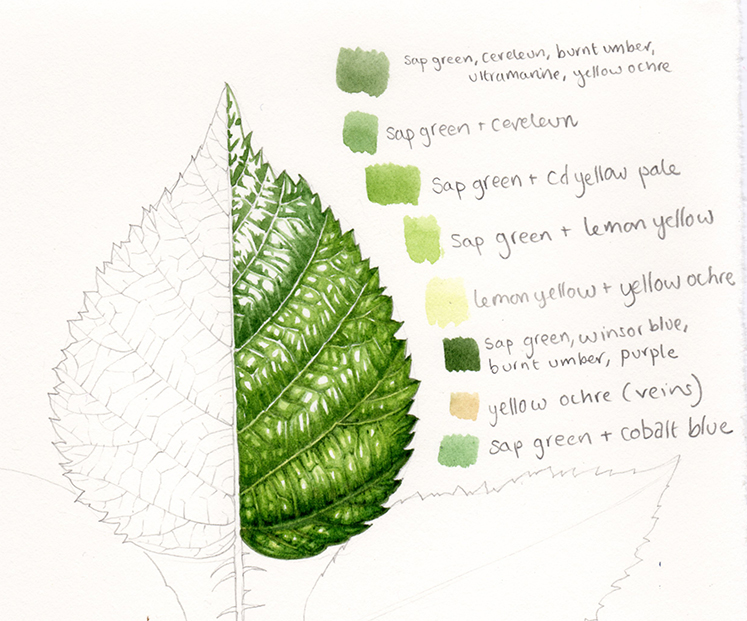 Sap green, cereleun, burnt umber,
ultramarine, yellow ochre
Sap green + cereleun
Sap green + Cd yellow pale
Sap green + lemon yellow
lemon yellow + yellow ochre
Sap green, winsor blue,
burnt umber, purple
yellow ochre (veins)
Sap green + cobalt blue